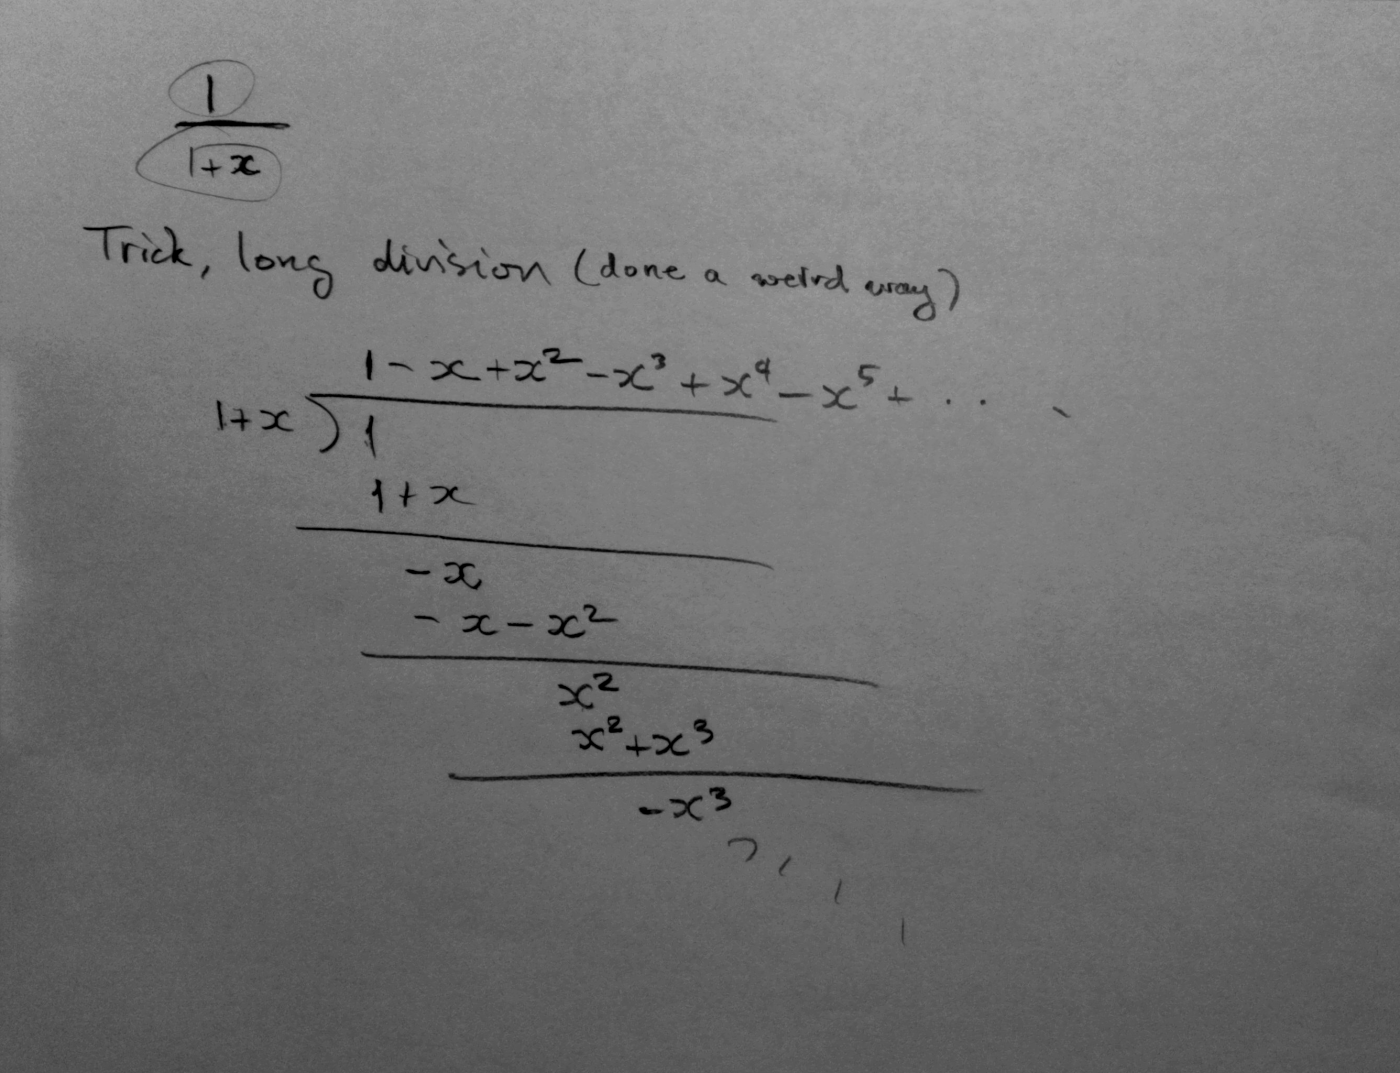 1
1+x
Trick, long division (done a weird way)
1 - x + x² - x³ + x⁴ - x⁵ + ...
1+x ) 1
1 + x
- x
- x - x²
x²
x² + x³
- x³